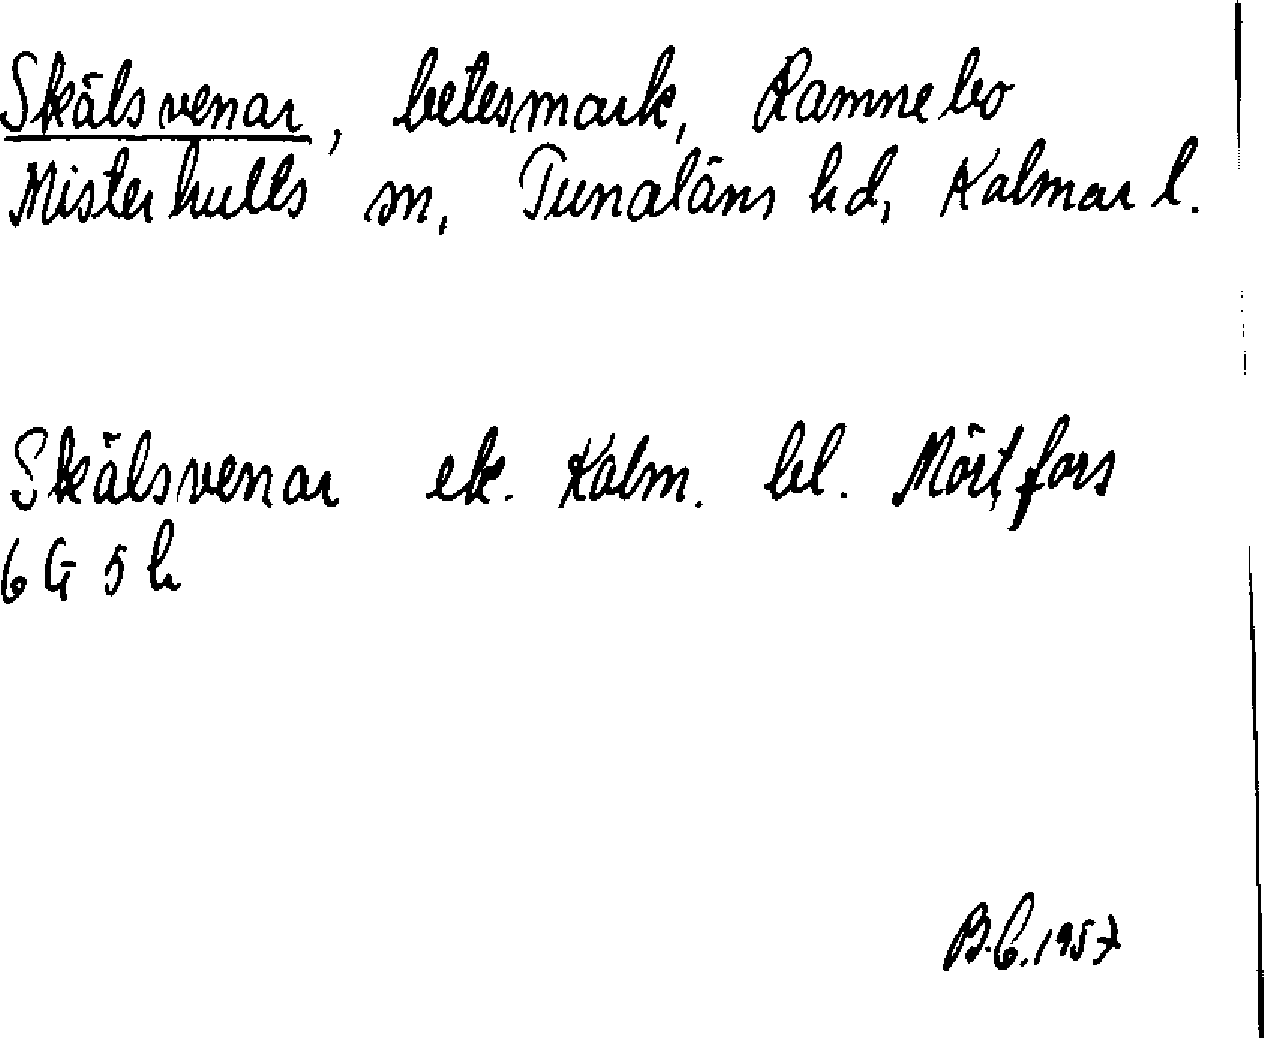 Skälsvenar, betesmark, Ramnebo
Misterhults sn, Tunaläns hd, Kalmar l.
Skälsvenar ek. Kalm. bl. Mörtfors
6 G 5 h
1957